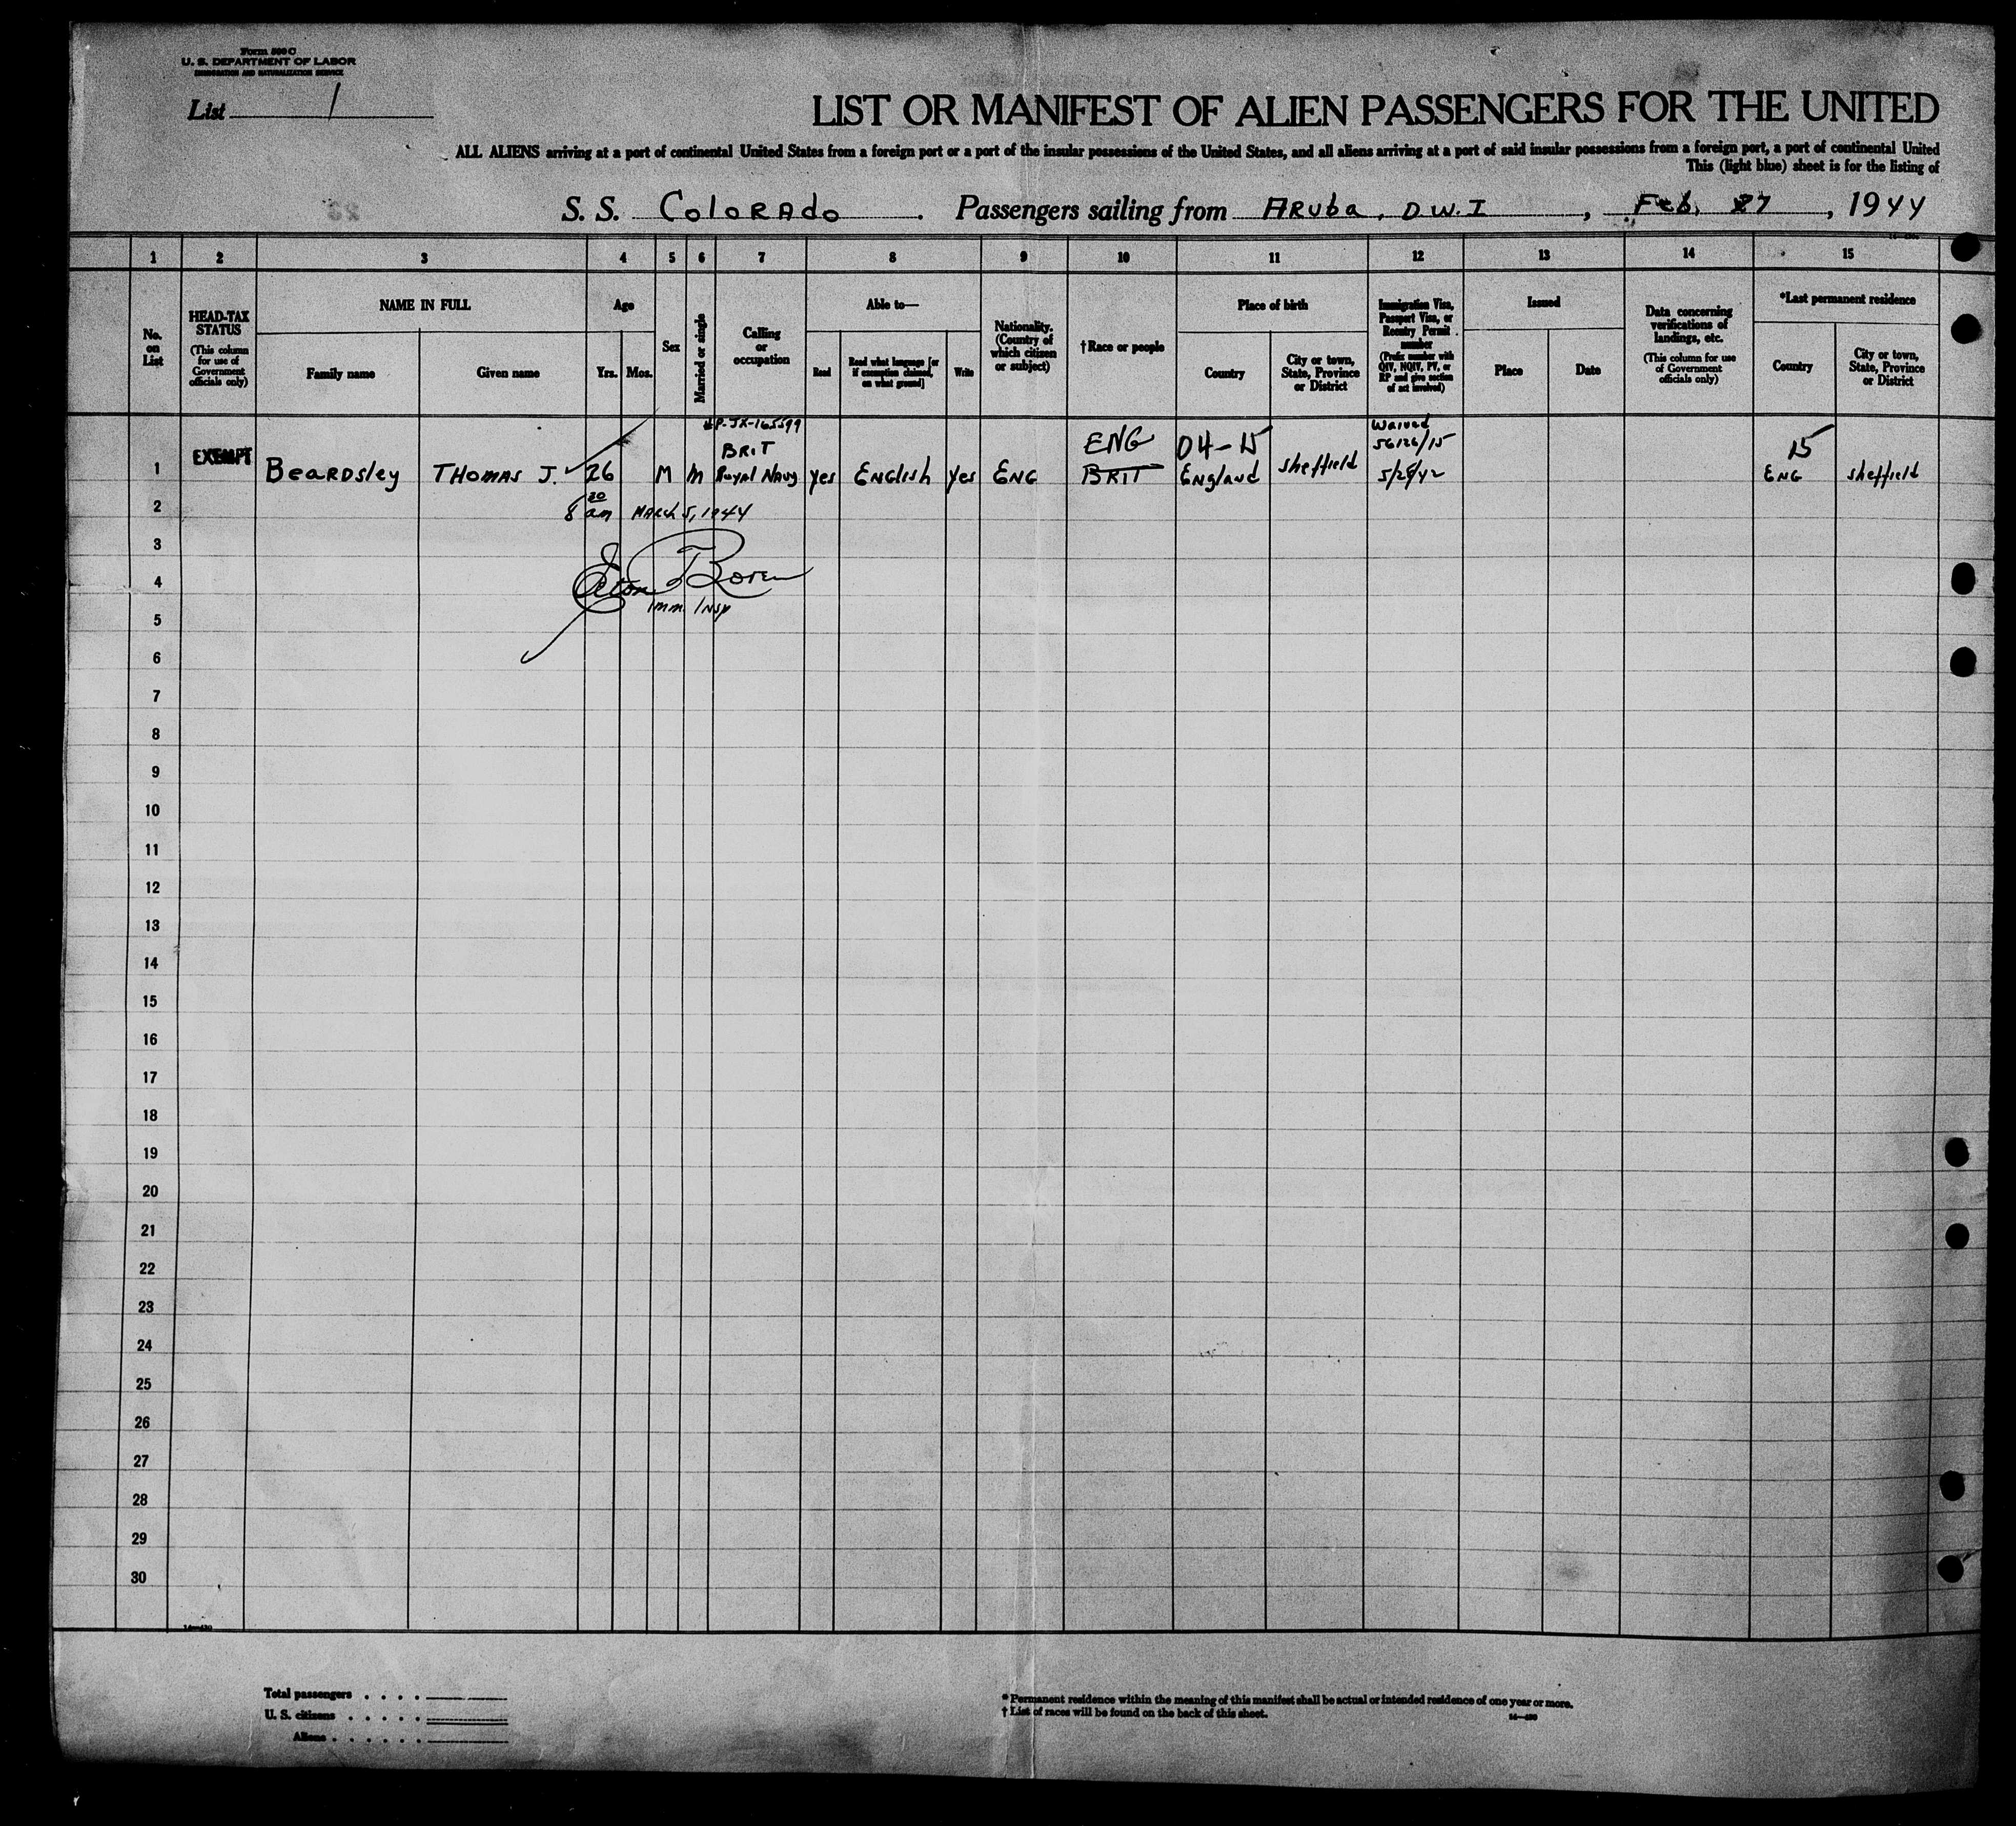 Form 500 C
U. S. DEPARTMENT OF LABOR
IMMIGRATION AND NATURALIZATION SERVICE
List 1
LIST OR MANIFEST OF ALIEN PASSENGERS FOR THE UNITED
ALL ALIENS arriving at a port of continental United States from a foreign port or a port of the insular possessions of the United States, and all aliens arriving at a port of said insular possessions from a foreign port, a port of continental United
This (light blue) sheet is for the listing of
S. S. Colorado . Passengers sailing from Aruba, D.W.I , Feb. 27 , 1944
1 2 3 4 5 6 7 8 9 10 11 12 13 14 15
No. on List
HEAD-TAX STATUS
(This column for use of Government officials only)
NAME IN FULL
Family name
Given name
Age
Yrs. Mos.
Sex
Married or single
Calling or occupation
Able to—
Read
Read what language [or if exemption claimed, on what ground]
Write
Nationality. (Country of which citizen or subject)
†Race or people
Place of birth
Country
City or town, State, Province or District
Immigration Visa, Passport Visa, or Reentry Permit number
(Prefix number with QIV, NQIV, PV, or RP and give section of act involved)
Issued
Place
Date
Data concerning verifications of landings, etc.
(This column for use of Government officials only)
*Last permanent residence
Country
City or town, State, Province or District
#P-JX-165599 Waived
BRIT ENG 04-15 56126/15 15
1 EXEMPT Beardsley Thomas J. 26 M M Royal Navy yes English yes ENG BRIT England Sheffield 5/29/42 ENG Sheffield
2 8 30 am March 5, 1944
3
4
5 Imm. Insp
6
7
8
9
10
11
12
13
14
15
16
17
18
19
20
21
22
23
24
25
26
27
28
29
30
Total passengers . . . .
U. S. citizens . . . . .
Aliens . . . . . .
* Permanent residence within the meaning of this manifest shall be actual or intended residence of one year or more.
† List of races will be found on the back of this sheet.